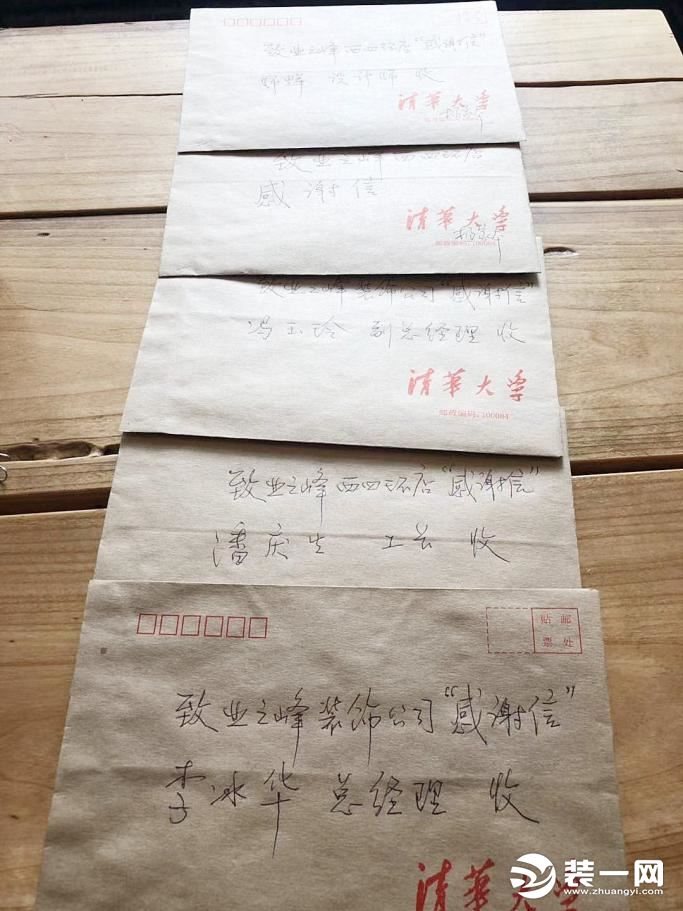 致业之峰西四环店“感谢信”
设计师 收
清华大学
致业之峰西四环店
感谢信
清华大学
邮政编码:100084
致业之峰装饰公司“感谢信”
冯玉玲 副总经理 收
清华大学
邮政编码:100084
致业之峰西四环店“感谢信”
潘庆生 工长 收
贴 邮
票 处
致业之峰装饰公司“感谢信”
李冰华 总经理 收
清华大学
装一网
www.zhuangyi.com